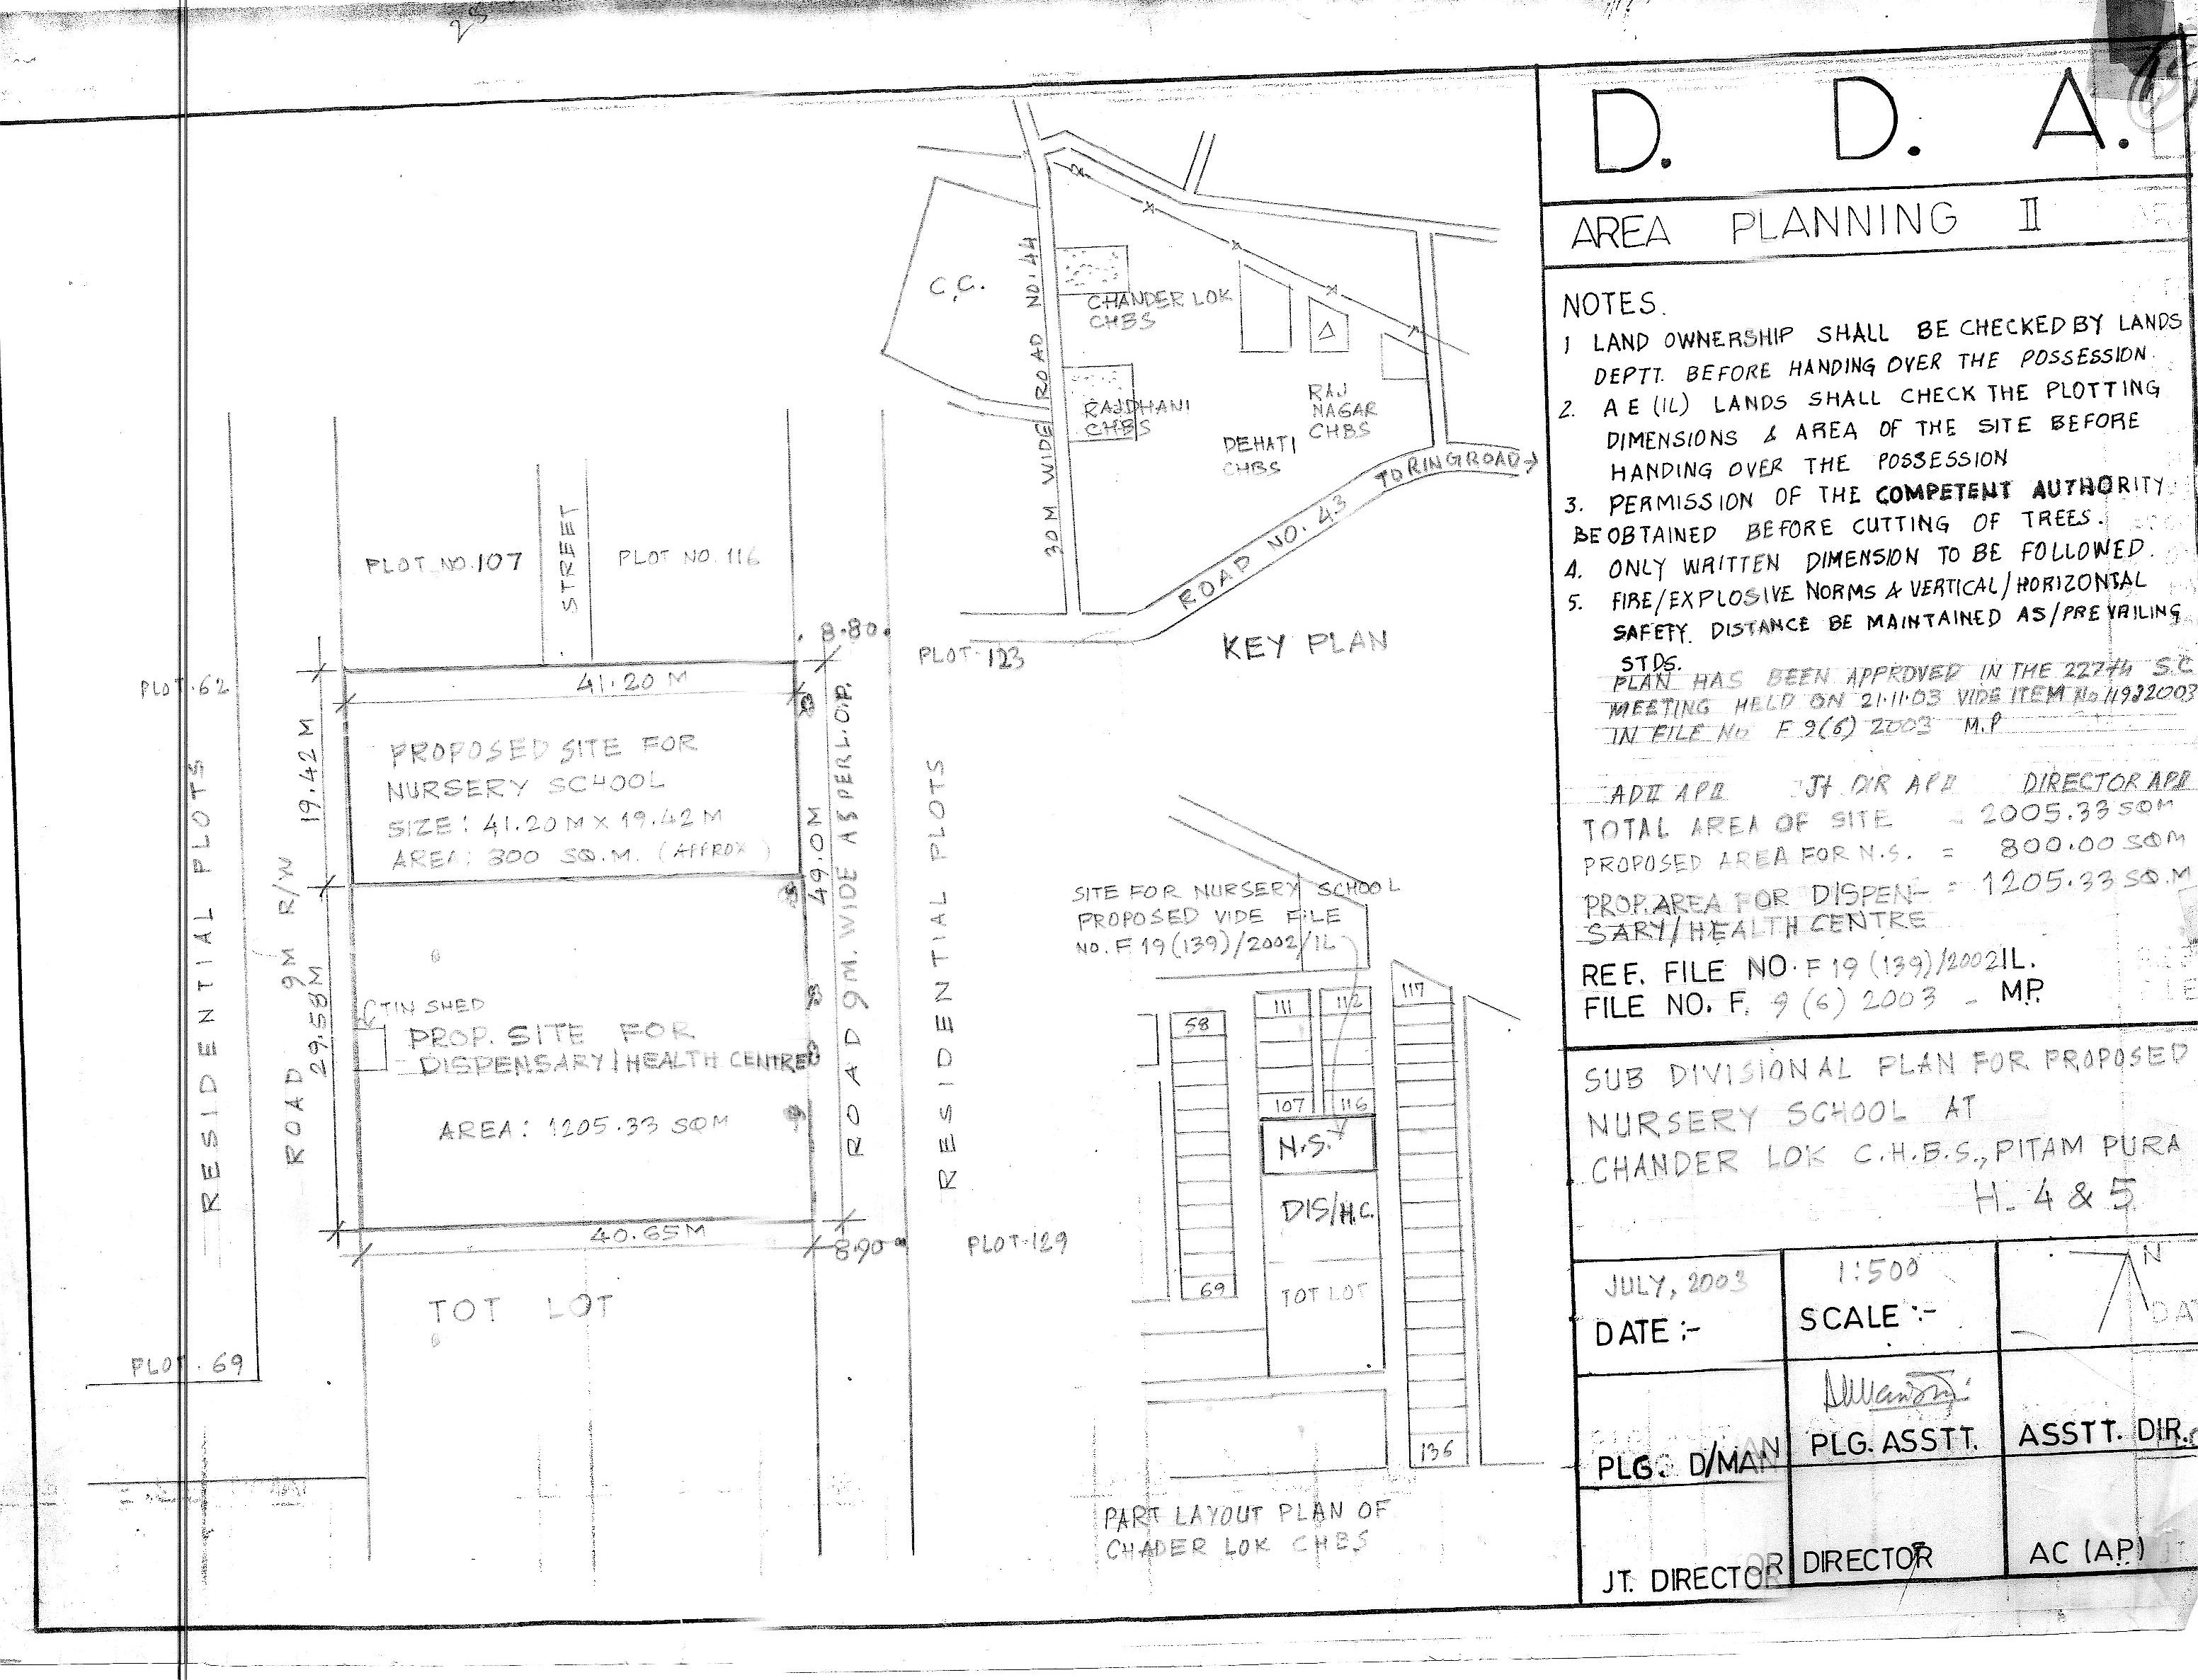 D. D. A.
AREA PLANNING II
NOTES.
1 LAND OWNERSHIP SHALL BE CHECKED BY LANDS
DEPTT. BEFORE HANDING OVER THE POSSESSION.
2. A E (IL) LANDS SHALL CHECK THE PLOTTING
DIMENSIONS & AREA OF THE SITE BEFORE
HANDING OVER THE POSSESSION
3. PERMISSION OF THE COMPETENT AUTHORITY
BE OBTAINED BEFORE CUTTING OF TREES.
4. ONLY WRITTEN DIMENSION TO BE FOLLOWED.
5. FIRE/EXPLOSIVE NORMS & VERTICAL/HORIZONTAL
SAFETY. DISTANCE BE MAINTAINED AS/PREVAILING
STDS.
PLAN HAS BEEN APPROVED IN THE S.C
MEETING HELD ON 21.11.03 VIDE ITEM No
IN FILE No F 9(6) 2003 M.P
ADII APII Jt DIR APII DIRECTOR APII
TOTAL AREA OF SITE = 2005.33 SQM
PROPOSED AREA FOR N.S. = 800.00 SQM
PROP. AREA FOR DISPEN- = 1205.33 SQ.M
SARY/HEALTH CENTRE
REF. FILE NO. F 19 (139)/2002 IL.
FILE NO. F. 9 (6) 2003 - M.P.
SUB DIVISIONAL PLAN FOR PROPOSED
NURSERY SCHOOL AT
CHANDER LOK C.H.B.S., PITAM PURA
H- 4 & 5
JULY, 2003
DATE :-
1:500
SCALE :-
N
PLG. D/MAN
PLG. ASSTT.
ASSTT. DIR.
JT. DIRECTOR
DIRECTOR
AC (AP)
C.C.
30M WIDE ROAD NO. 44
CHANDER LOK
CHBS
RAJDHANI
CHBS
DEHATI
CHBS
RAJ
NAGAR
CHBS
ROAD NO. 43 TO RING ROAD
KEY PLAN
PLOT NO. 107
STREET
PLOT NO. 116
8.80
PLOT-123
PLOT-62
41.20 M
19.42 M
PROPOSED SITE FOR
NURSERY SCHOOL
SIZE: 41.20 M X 19.42 M
AREA: 800 SQ.M. (APPROX)
49.0M
ROAD 9M. WIDE AS PER L.O.P.
RESIDENTIAL PLOTS
RESIDENTIAL PLOTS
ROAD 9M R/W
29.58M
TIN SHED
PROP. SITE FOR
DISPENSARY/HEALTH CENTRE
AREA: 1205.33 SQM
40.65M
8.90
PLOT-129
TOT LOT
PLOT-69
SITE FOR NURSERY SCHOOL
PROPOSED VIDE FILE
NO. F 19 (139)/2002/IL
58
111
112
117
107
116
N.S.
DIS/H.C.
TOT LOT
69
136
PART LAYOUT PLAN OF
CHADER LOK CHBS
25